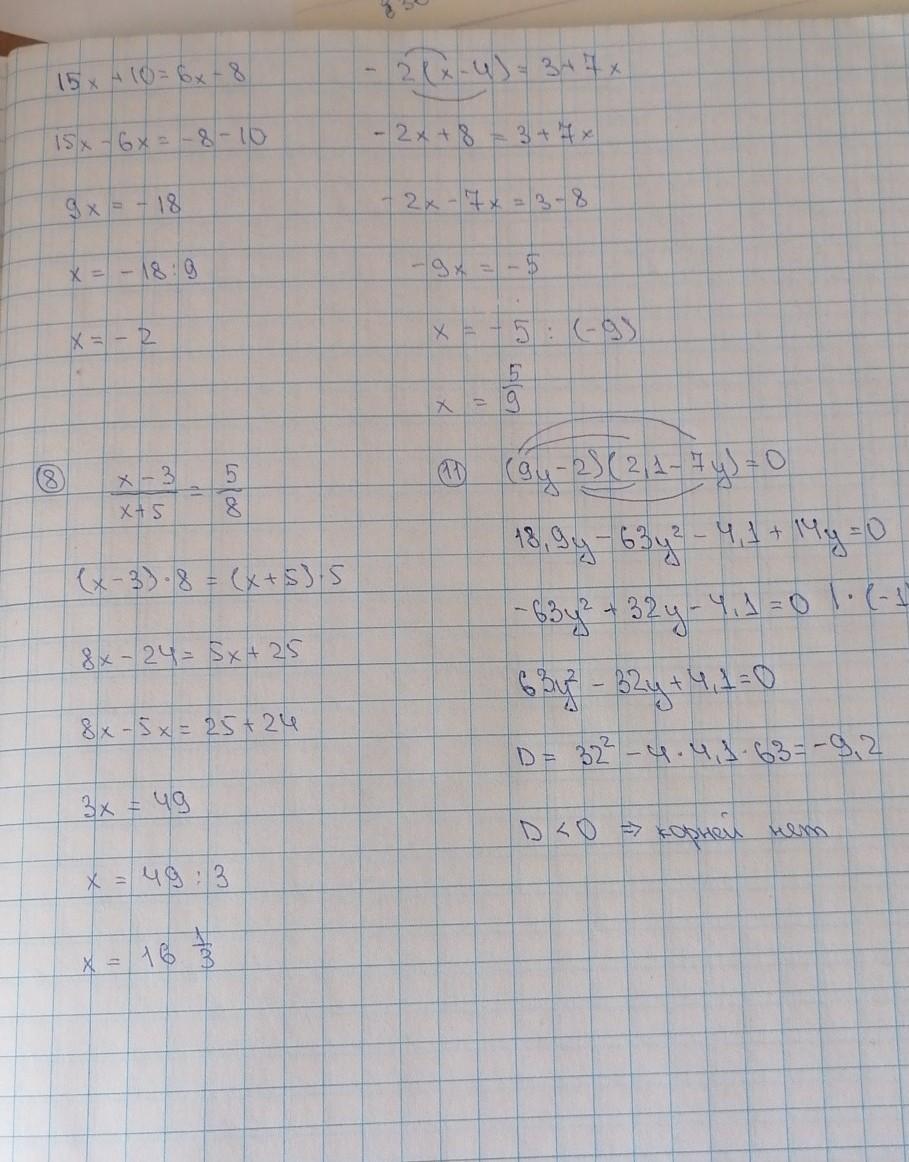 15x + 10 = 6x - 8
15x - 6x = -8 - 10
9x = -18
x = -18 : 9
x = -2
- 2(x - 4) = 3 + 7x
- 2x + 8 = 3 + 7x
- 2x - 7x = 3 - 8
-9x = -5
x = -5 : (-9)
x = 5/9
⑧ (x - 3)/(x + 5) = 5/8
(x - 3) · 8 = (x + 5) · 5
8x - 24 = 5x + 25
8x - 5x = 25 + 24
3x = 49
x = 49 : 3
x = 16 1/3
⑪ (9y - 2)(2,1 - 7y) = 0
18,9y - 63y² - 4,1 + 14y = 0
-63y² + 32y - 4,1 = 0 | · (-1)
63y² - 32y + 4,1 = 0
D = 32² - 4 · 4,1 · 63 = -9,2
D < 0 ⇒ корней нет